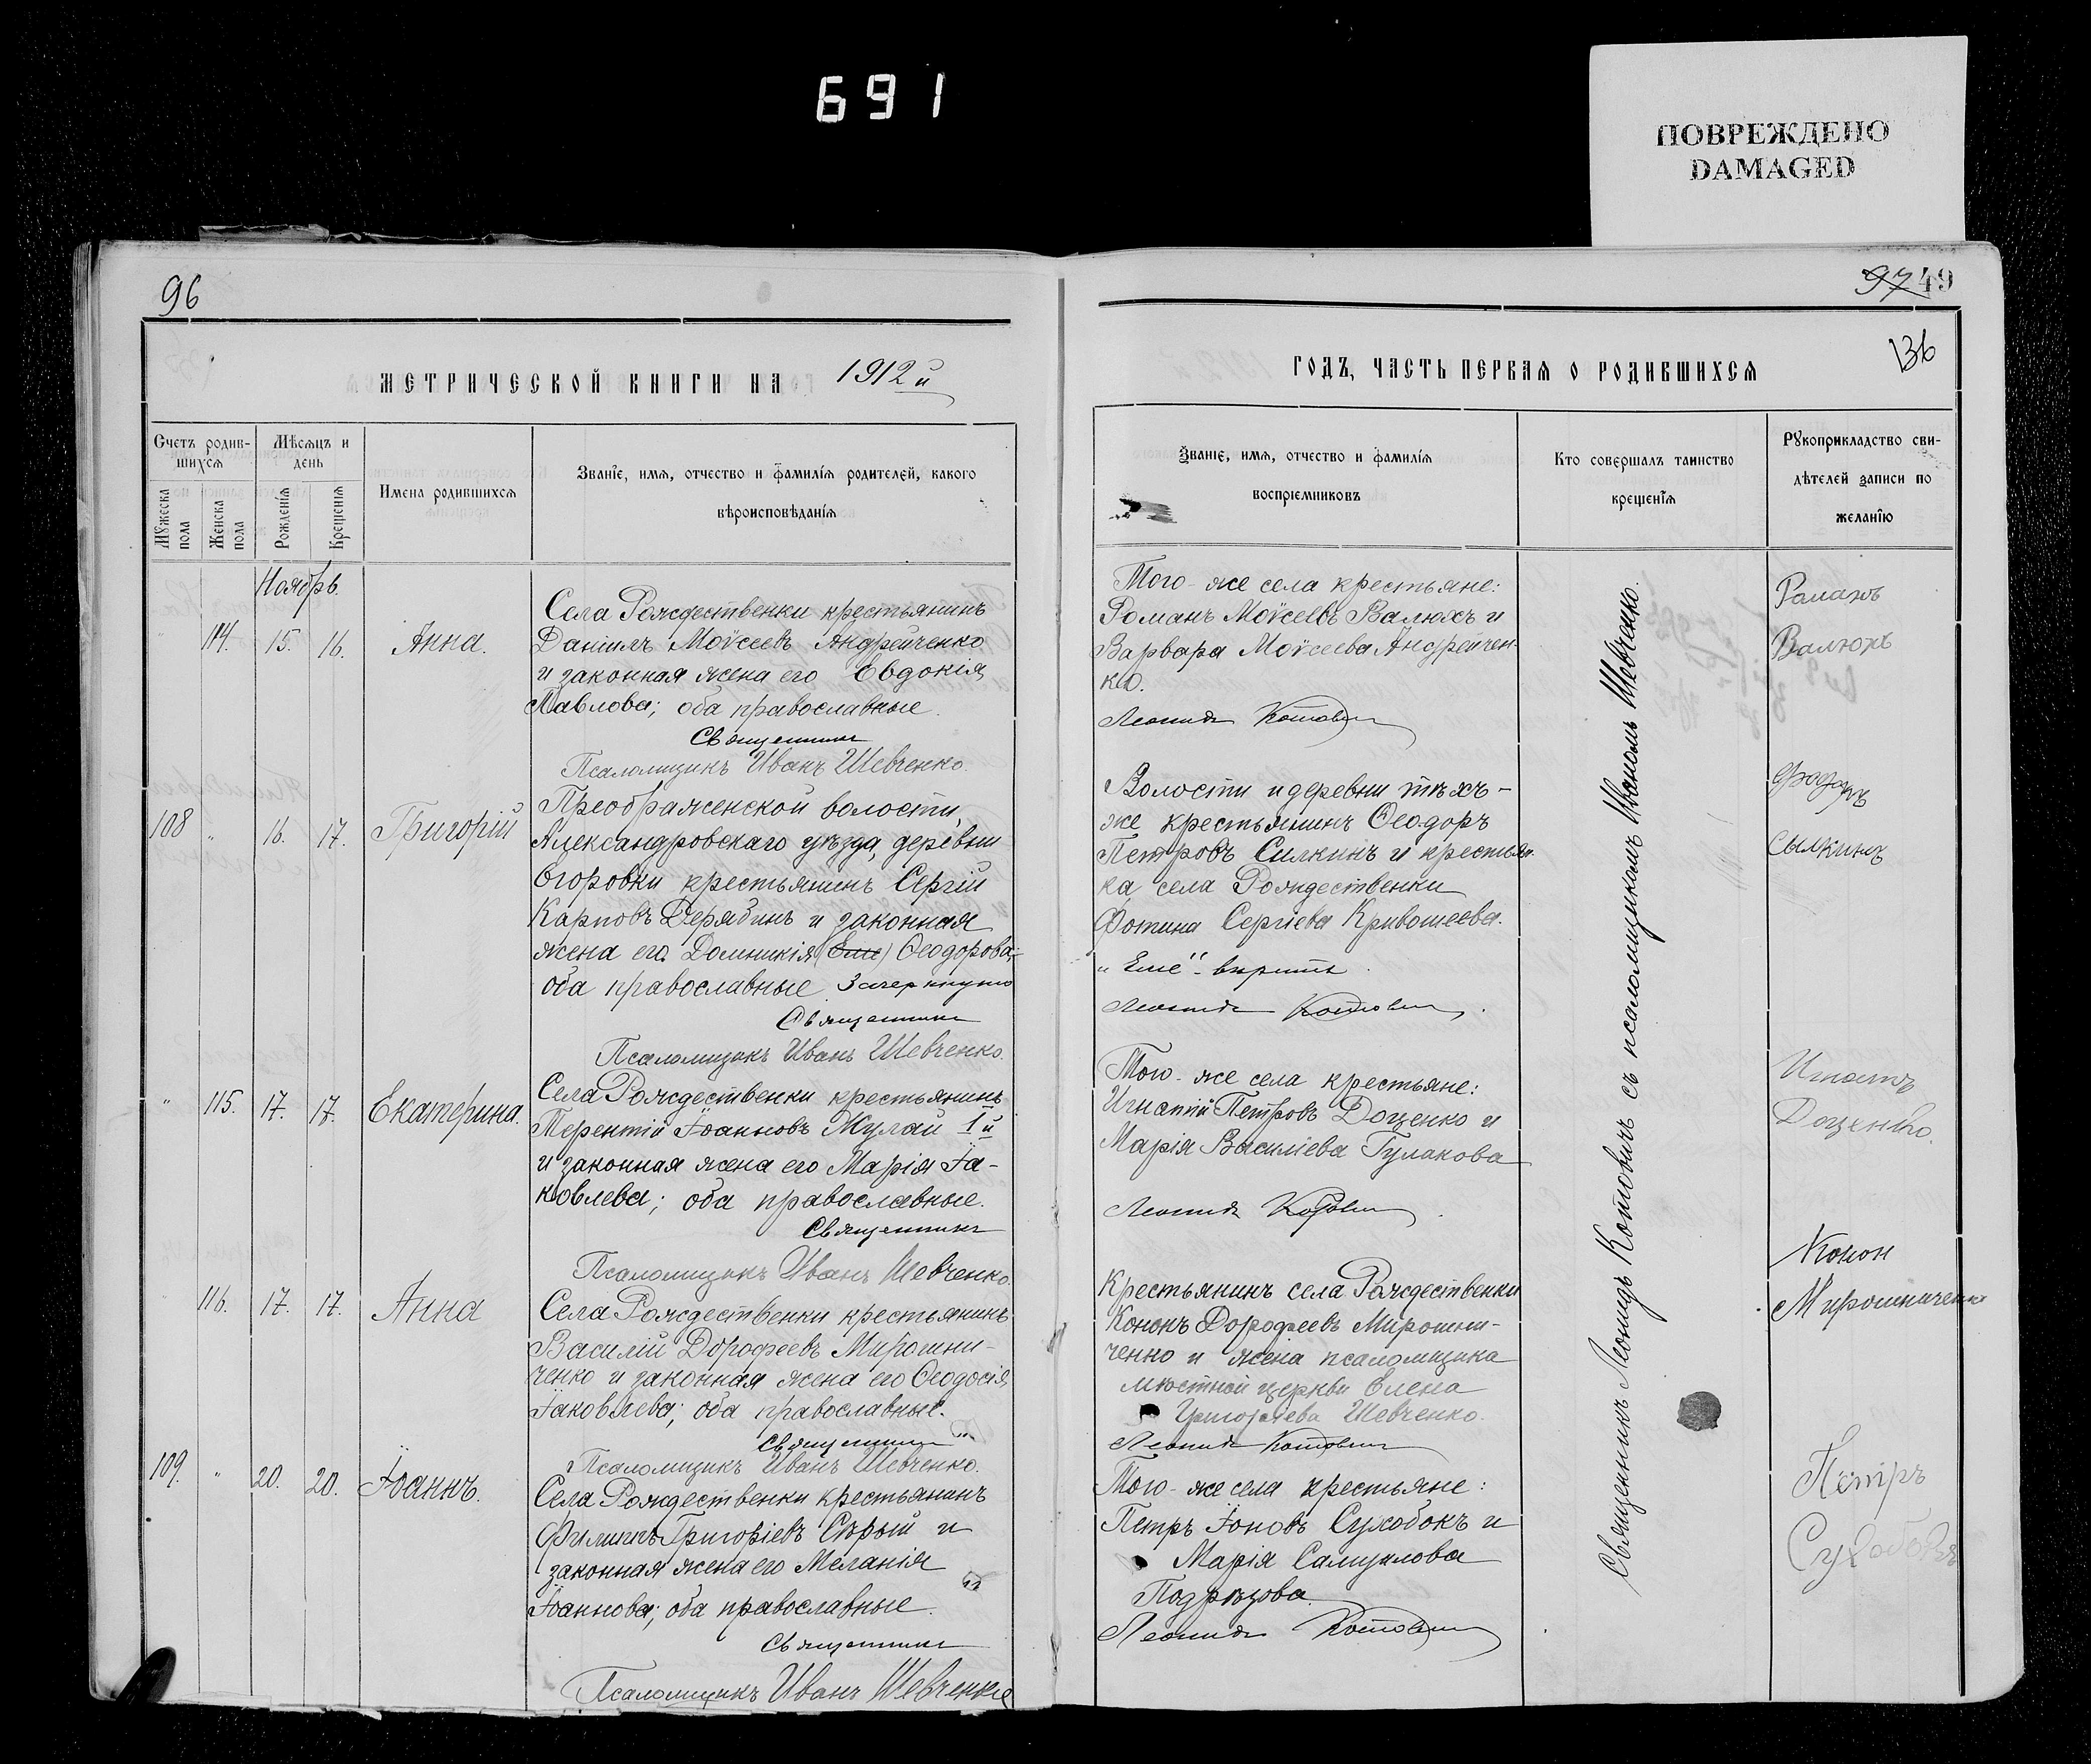 691
ПОВРЕЖДЕНО
DAMAGED
96
МЕТРИЧЕСКОЙ КНИГИ НА 1912й
Счетъ родив-
шихся
Мѣсяцъ и
день
Мужеска
пола
Женска
пола
Рожденія
Крещенія
Имена родившихся
Званіе, имя, отчество и фамилія родителей, какого
вѣроисповѣданія
Ноябрь.
114. 15. 16. Анна.
Села Рождественки крестьянинъ
Даніилъ Моѵсеевъ Андрейченко
и законная жена его Евдокія
Павлова; оба православные.
Священникъ
Псаломщикъ Иванъ Шевченко.
108 " 16. 17. Григорій
Преображенской волости,
Александровскаго уѣзда, деревни
Егоровки крестьянинъ Сергій
Карповъ Дерябинъ и законная
жена его Домникія (Еме) Ѳеодорова;
оба православные. Зачеркнуто
Священникъ
Псаломщикъ Иванъ Шевченко.
" 115. 17. 17. Екатерина.
Села Рождественки крестьянинъ
Терентій Іоанновъ Жулай 1й
и законная жена его Марія Іа-
ковлева; оба православные.
Священникъ
Псаломщикъ Иванъ Шевченко.
116. 17. 17. Анна
Села Рождественки крестьянинъ
Василій Дорофеевъ Мирошни-
ченко и законная жена его Ѳеодосія
Іаковлева; оба православные.
Священникъ
Псаломщикъ Иванъ Шевченко.
109. " 20. 20. Іоаннъ.
Села Рождественки крестьянинъ
Филиппъ Григоріевъ Сѣрый и
законная жена его Меланія
Іоаннова; оба православные.
Священникъ
Псаломщикъ Иванъ Шевченко
97 49
136
ГОДЪ, ЧАСТЬ ПЕРВАЯ О РОДИВШИХСЯ
Званіе, имя, отчество и фамилія
воспріемниковъ
Кто совершалъ таинство
крещенія
Рукоприкладство сви-
дѣтелей записи по
желанію
Того-же села крестьяне:
Романъ Моѵсеевъ Валюхъ и
Варвара Моѵсеева Андрейчен-
ко.
Леонидъ Котовичъ
Волости и деревни тѣхъ-
же крестьянинъ Ѳеодоръ
Петровъ Силкинъ и крестьян-
ка села Рождественки
Фотина Сергіева Кривошеева.
"Еме"- вѣрить.
Леонидъ Котовичъ
Того-же села крестьяне:
Игнатій Петровъ Доценко и
Марія Василіева Гулакова
Леонидъ Котовичъ
Крестьянинъ села Рождественки
Кононъ Дорофеевъ Мирошни-
ченко и жена псаломщика
мѣстной церкви Елена
Григоріева Шевченко.
Леонидъ Котовичъ
Того-же села крестьяне:
Петръ Іоновъ Сухобокъ и
Марія Самуилова
Подрѣзова.
Леонидъ Котовичъ
Священникъ Леонидъ Котовичъ съ псаломщикомъ Иваномъ Шевченко.
Раманъ
Валюхъ
Фадоръ
Сылкинъ
Игнатъ
Доценко.
Конон
Мирошниченко
Петръ
Сухобокъ